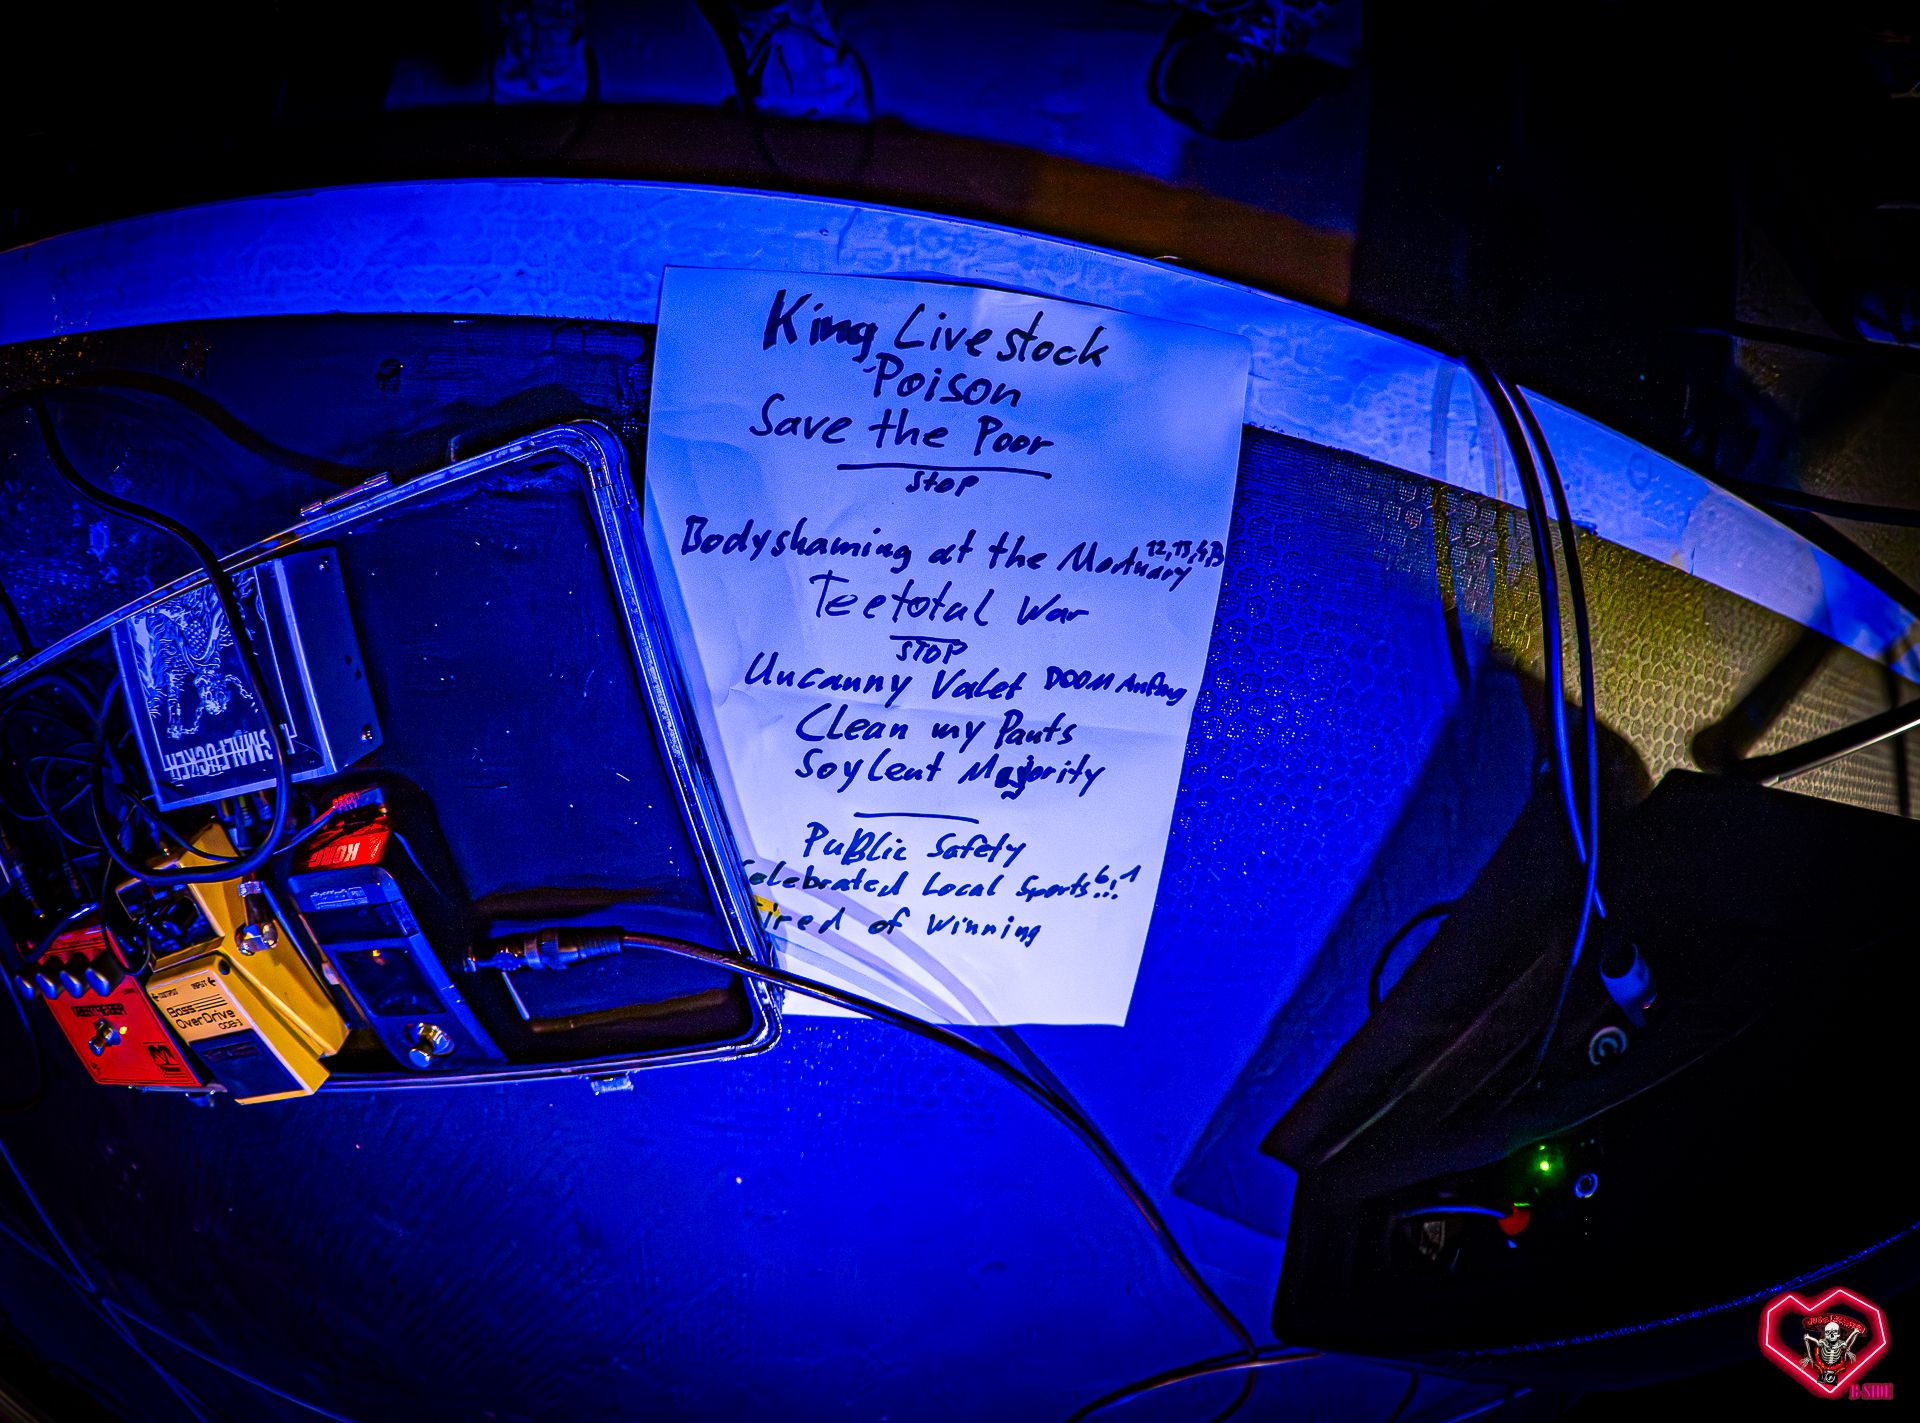 King Livestock
Poison
Save the Poor
STOP
Bodyshaming at the Mortuary
Teetotal War
STOP
Uncanny Valet DOOM Anfang
Clean my Pants
Soylent Majority
Public Safety
Celebrated Local Sports!!!
Tired of Winning
SMALLFUCKER
KORG
OUTPUT INPUT
Bass
OverDrive
ODB-3
B-SIDE